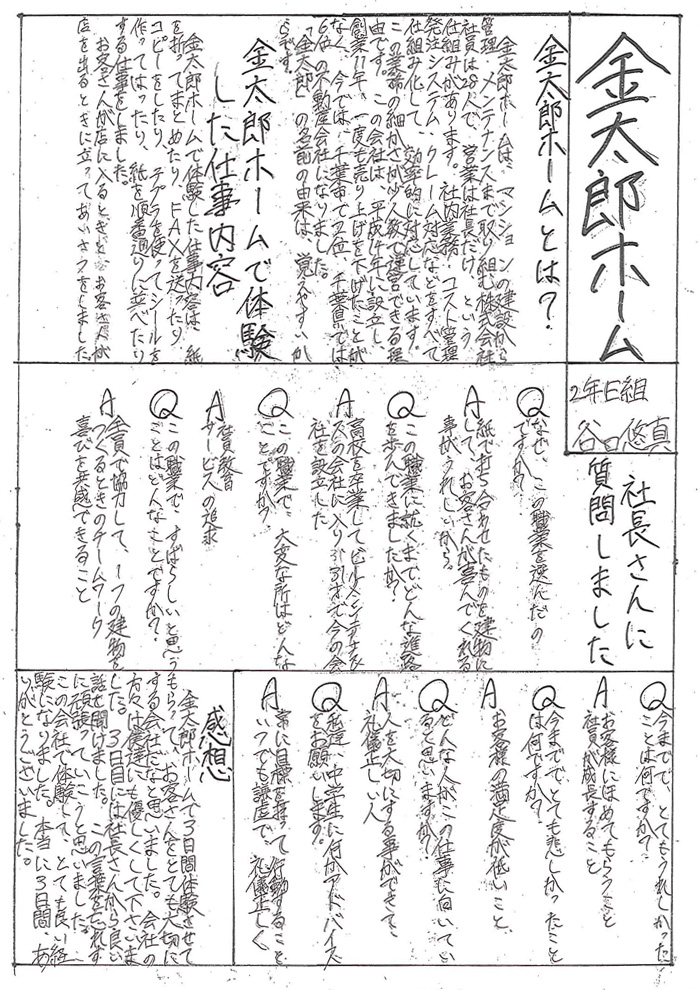 金太郎ホーム
2年E組
谷口悠真
金太郎ホームとは?
金太郎ホームは、マンションの建設から
管理・メンテナンスまで取り組む株式会社
社員は28人で、営業は社長だけ、という
仕組みがあります。社内業務・コスト管理
発注システム、クレーム対応などをすべて
仕組み化して、効率的に対応しています。
この業務の細かさが少人数で運営できる理
由です。この会社は、平成14年に設立し
創業11年、一度も売り上げを下げたことが
なく、今では、千葉市で2位、千葉県では
6位の不動産会社になりました。
「金太郎」の名前の由来は、覚えやすいか
らです。
金太郎ホームで体験
した仕事内容
金太郎ホームで体験した仕事内容は、紙
を折ってまとめたり、FAXを送ったり
コピーをしたり、テプラを使ってシールを
作ってはったり、紙を順番通りに並べたり
する仕事をしました。
お客さんが店に入るときと、お客さんが
店を出るときに立ってあいさつをしました
社長さんに
質問しました
Q なぜ、この職業を選んだの
ですか?
A 紙で打ち合わせたものを建物に
して、お客さんが喜んでくれる
事がうれしいから
Q この職業に就くまでどんな進路
を歩んできましたか?
A 高校を卒業してビルメンテナン
スの会社に入り、31才で今の会
社を設立した
Q この職業で、大変な所はどんな
ことですか?
A 社員教育
サービスの追求
Q この職業で、すばらしいと思う
ことはどんなことですか?
A 全員で協力して、1つの建物を
つくるときのチームワーク
喜びを共感できること
Q 今までで、とてもうれしかった
ことは何ですか?
A お客様にほめてもらうこと
社員が成長すること
Q 今までで、とても悲しかったこと
は何ですか?
A お客様の満足度が低いこと、
Q どんな人がこの仕事に向いてい
ると思いますか?
A 人を大切にする事ができて、
礼儀正しい人
Q 私達、中学生に何かアドバイス
をお願いします。
A 常に目標を持って行動すること
いつでも謙虚で、礼儀正しく
感想
金太郎ホームで3日間体験させて
もらって、お客さんをとても大切に
する会社だなと思いました。会社の
方々は僕達にも優しくして下さいま
した。3日目には社長さんから良い
話を聞けました。この言葉を忘れず
に頑張っていこうと思いました。
この会社で体験して、とても良い経
験になりました。本当に3日間、あ
りがとうございました。